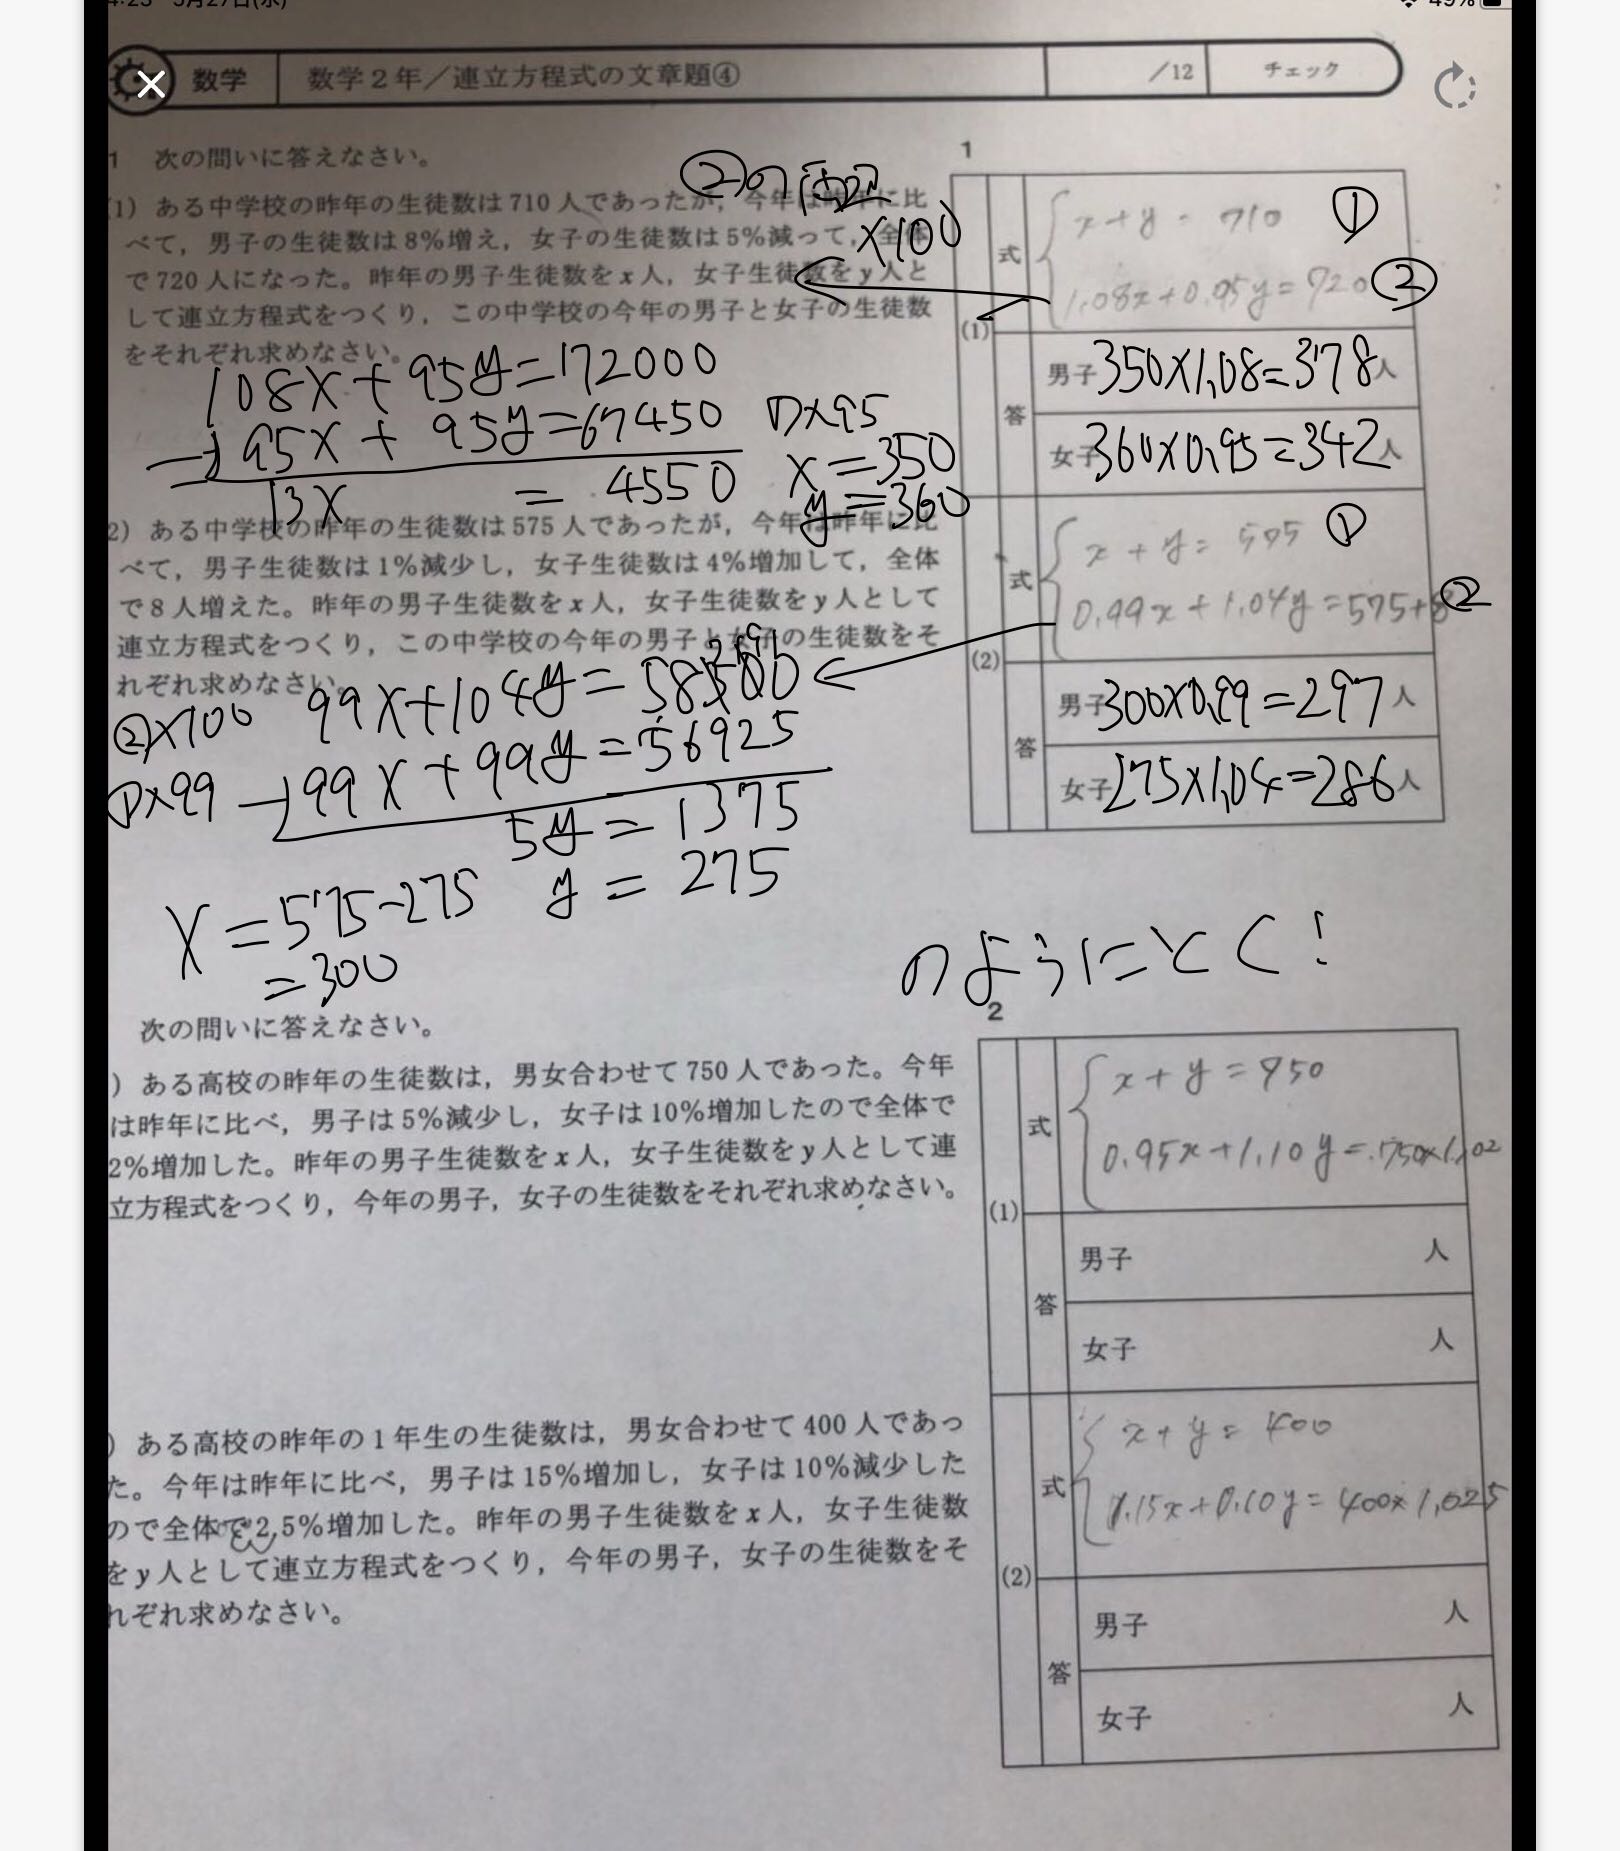 4:23 5月27日(水) 49%
数学 数学2年/連立方程式の文章題④ /12 チェック
1 次の問いに答えなさい。
(1) ある中学校の昨年の生徒数は710人であったが，今年は昨年に比
べて，男子の生徒数は8%増え，女子の生徒数は5%減って，全体
で720人になった。昨年の男子生徒数をx人，女子生徒数をy人と
して連立方程式をつくり，この中学校の今年の男子と女子の生徒数
をそれぞれ求めなさい。
②の
×100
108x+95y=172000
-)95x+95y=67450 ①×95
13x = 4550
x=350
y=360
2) ある中学校の昨年の生徒数は575人であったが，今年は昨年に比
べて，男子生徒数は1%減少し，女子生徒数は4%増加して，全体
で8人増えた。昨年の男子生徒数をx人，女子生徒数をy人として
連立方程式をつくり，この中学校の今年の男子と女子の生徒数をそ
れぞれ求めなさい。
②×100 99x+104y=58300
①×99 -)99x+99y=56925
5y=1375
y=275
x=575-275
=300
1
(1) 式 x+y=710 ①
1.08x+0.95y=720 ②
答 男子 350×1.08=378人
女子 360×0.95=342人
(2) 式 x+y=575 ①
0.99x+1.04y=575+8 ②
答 男子 300×0.99=297人
女子 275×1.04=286人
のようにとく!
次の問いに答えなさい。
) ある高校の昨年の生徒数は，男女合わせて750人であった。今年
は昨年に比べ，男子は5%減少し，女子は10%増加したので全体で
2%増加した。昨年の男子生徒数をx人，女子生徒数をy人として連
立方程式をつくり，今年の男子，女子の生徒数をそれぞれ求めなさい。
) ある高校の昨年の1年生の生徒数は，男女合わせて400人であっ
た。今年は昨年に比べ，男子は15%増加し，女子は10%減少した
ので全体で2.5%増加した。昨年の男子生徒数をx人，女子生徒数
をy人として連立方程式をつくり，今年の男子，女子の生徒数をそ
れぞれ求めなさい。
2
(1) 式 x+y=750
0.95x+1.10y=750×1.02
答 男子 人
女子 人
(2) 式 x+y=400
1.15x+0.10y=400×1.025
答 男子 人
女子 人